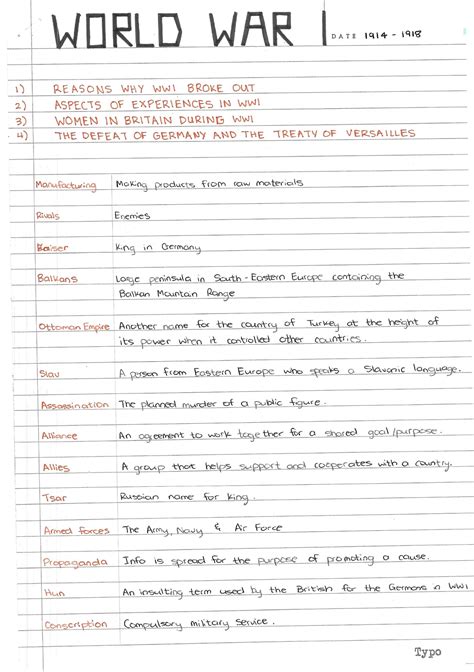 WORLD WAR I DATE 1914 - 1918
1) REASONS WHY WWI BROKE OUT
2) ASPECTS OF EXPERIENCES IN WWI
3) WOMEN IN BRITAIN DURING WWI
4) THE DEFEAT OF GERMANY AND THE TREATY OF VERSAILLES
Manufacturing Making products from raw materials
Rivals Enemies
Kaiser King in Germany
Balkans Large peninsula in South-Eastern Europe containing the
Balkan Mountain Range
Ottoman Empire Another name for the country of Turkey at the height of
its power when it controlled other countries.
Slav A person from Eastern Europe who speaks a Slavonic language.
Assassination The planned murder of a public figure.
Alliance An agreement to work together for a shared goal/purpose.
Allies A group that helps support and cooperates with a country.
Tsar Russian name for king.
Armed forces The Army, Navy & Air Force
Propaganda Info is spread for the purpose of promoting a cause.
Hun An insulting term used by the British for the Germans in WWI
Conscription Compulsory military service.
Typo